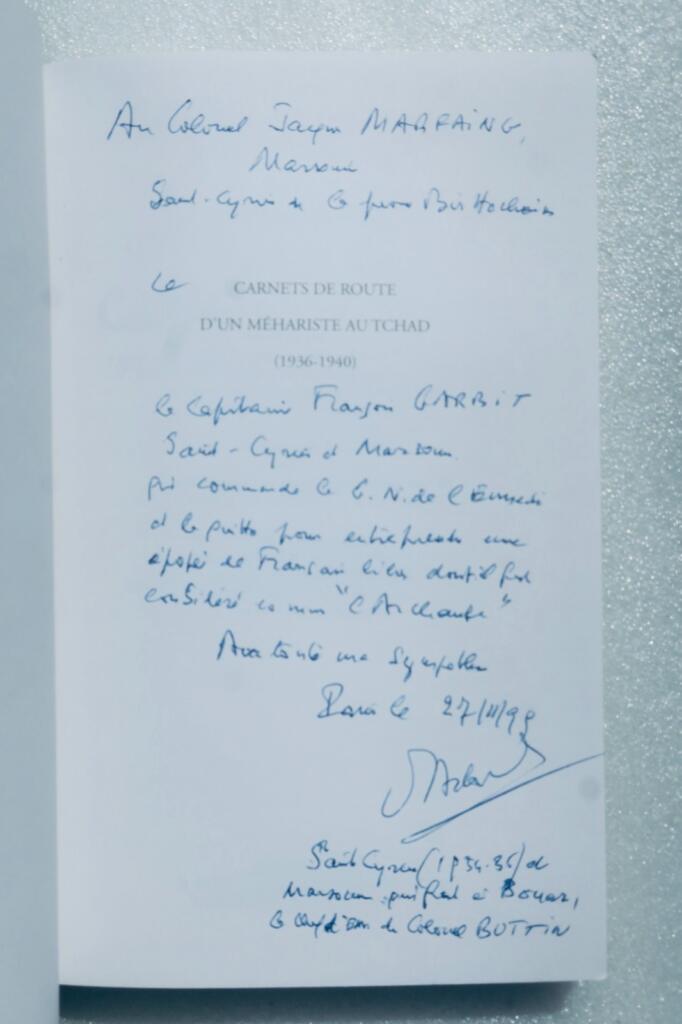 Au Colonel Jacques MARFAING,
Marsouin
Saint-Cyrien de la promo Bir Hacheim
Ce
CARNETS DE ROUTE
D'UN MÉHARISTE AU TCHAD
(1936-1940)
le Capitaine François GARBIT
Saint-Cyrien et Marsouin
qui commanda le G.N. de l'Ennedi
et le quitta pour entreprendre une
épopée de Français libre dont il fut
considéré comme "l'Archange"
Avec toute ma Sympathie
Paris le 27/11/99
Saint Cyrien (1934-36) et
Marsouin qui fut à Bouar,
de Colonel BUTTIN